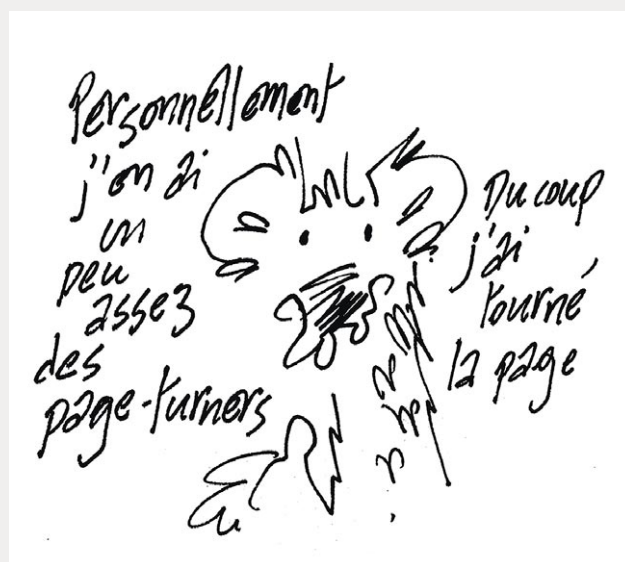 Personnellement
j'en ai
un
peu
assez
des
page-turners
Du coup
j'ai
tourné
la page